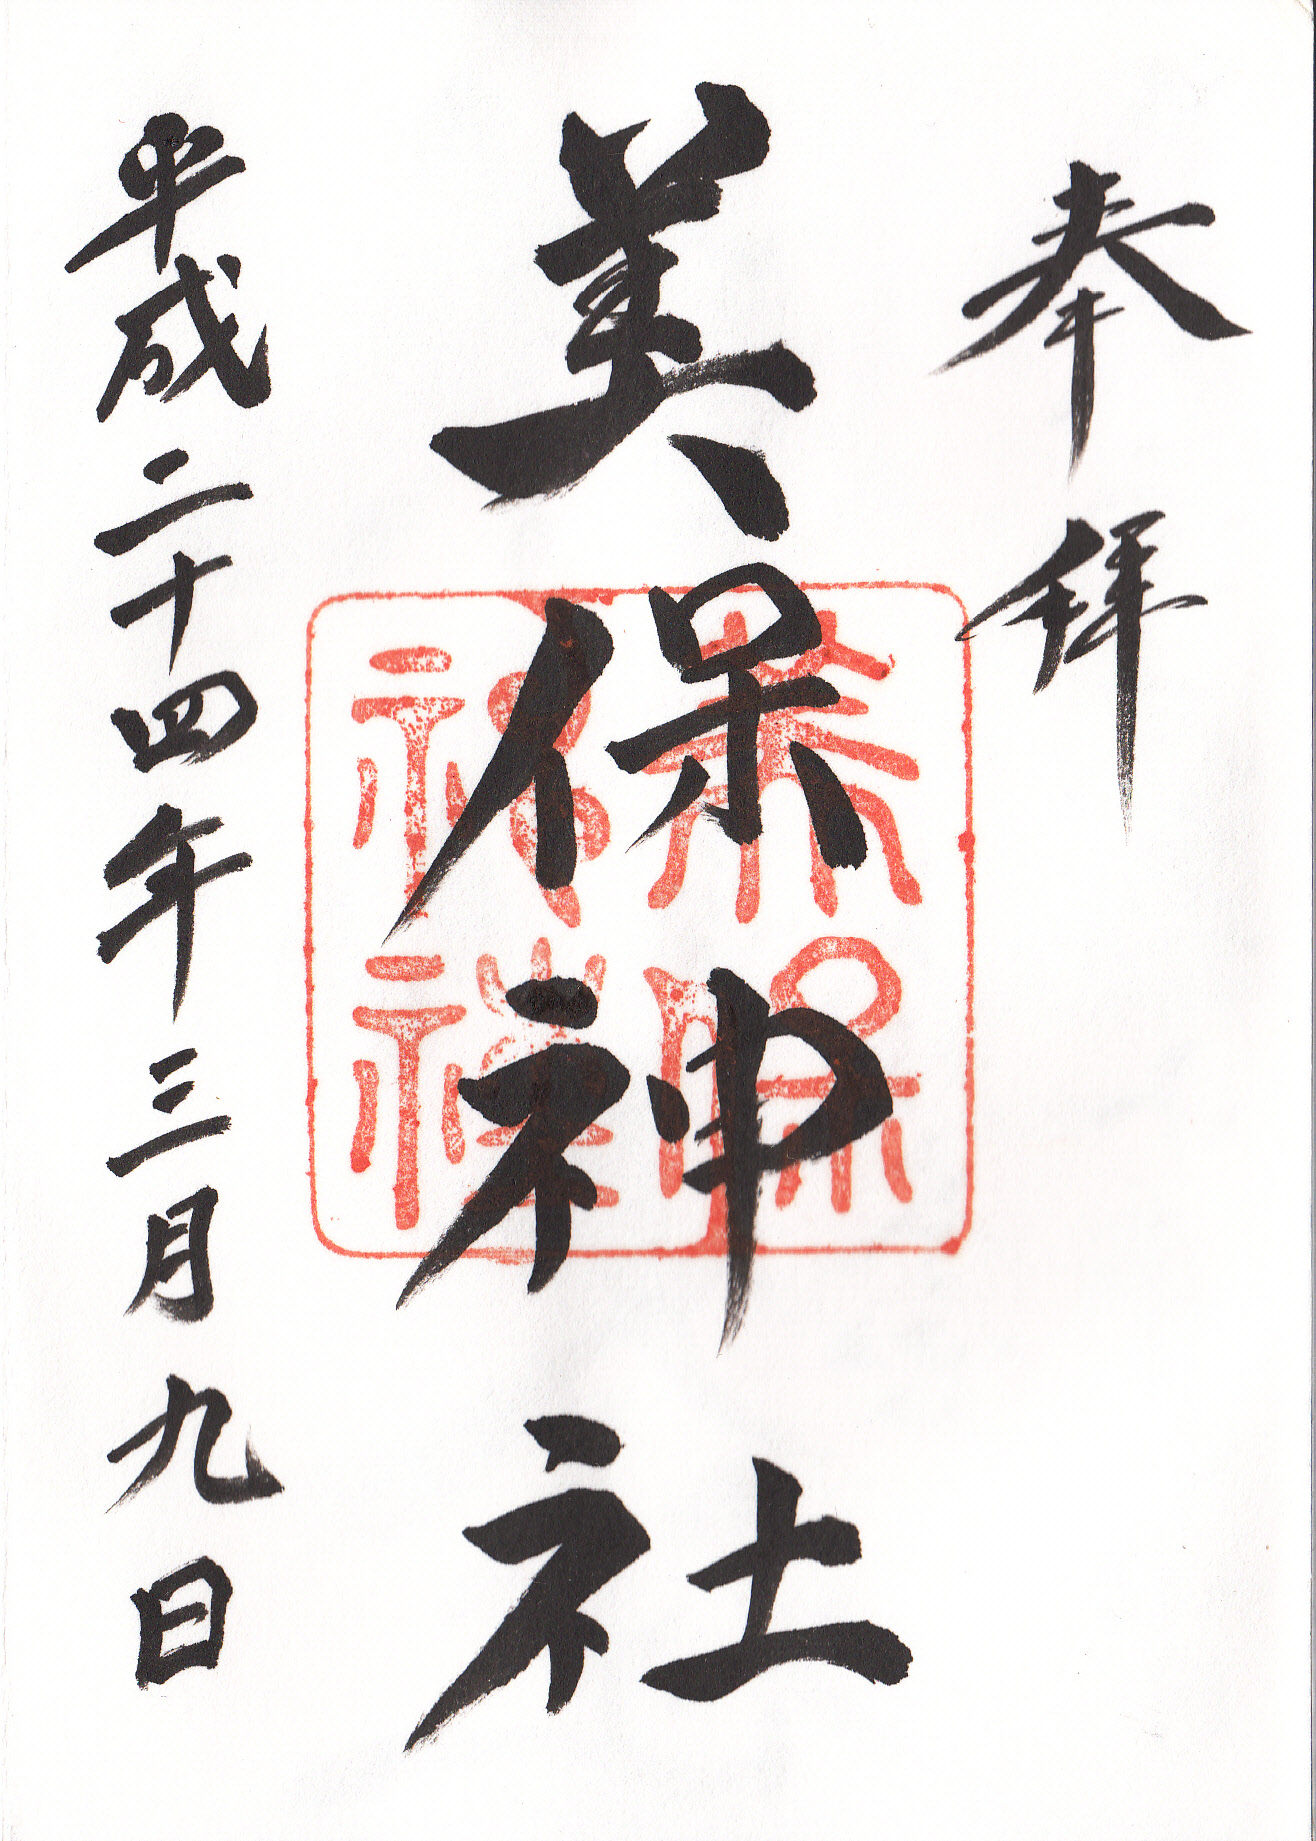 奉拝
美保神社
美保神社
平成二十四年三月九日